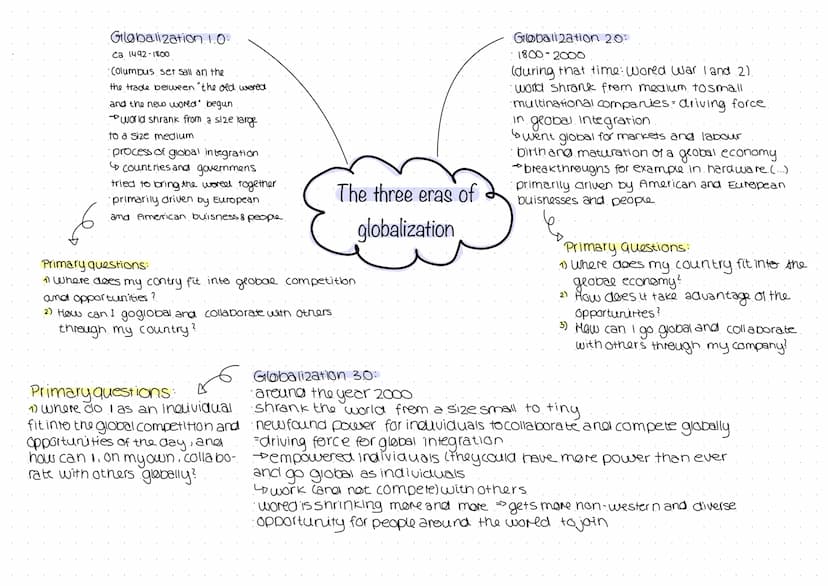 Globalization 1.0:
ca 1492-1800
·Columbus set sail an the
the trade between "the old world
and the new world" begun
→world shrank from a size large
to a size medium
·process of global integration
↳ countries and governmens
tried to bring the world together
·primarily driven by European
and American buisness & people
Primary questions:
1) Where does my contry fit into global competition
and opportunities?
2) How can I go global and collaborate with others
through my country?
The three eras of
globalization
Globalization 2.0:
·1800-2000
(during that time: World War 1 and 2)
·world shrank from medium to small
·multinational companies = driving force
in global integration
↳went global for markets and labour
·birth and maturation of a global economy
→breakthroughs for example in hardware (...)
·primarily driven by American and European
buisnesses and people
Primary Questions:
1) Where does my country fit into the
global economy?
2) How does it take advantage of the
opportunities?
3) How can I go global and collaborate
with others through my company?
Globalization 3.0:
·around the year 2000
·shrank the world from a size small to tiny
·newfound power for individuals to collaborate and compete globally
=driving force for global integration
→empowered individuals (they could have more power than ever
and go global as individuals
↳work (and not compete) with others
·world is shrinking more and more →gets more non-western and diverse
·opportunity for people around the world to join
Primary questions:
1) Where do I as an individual
fit into the global competition and
opportunities of the day, and
how can I, on my own, collabo-
rate with others globally?